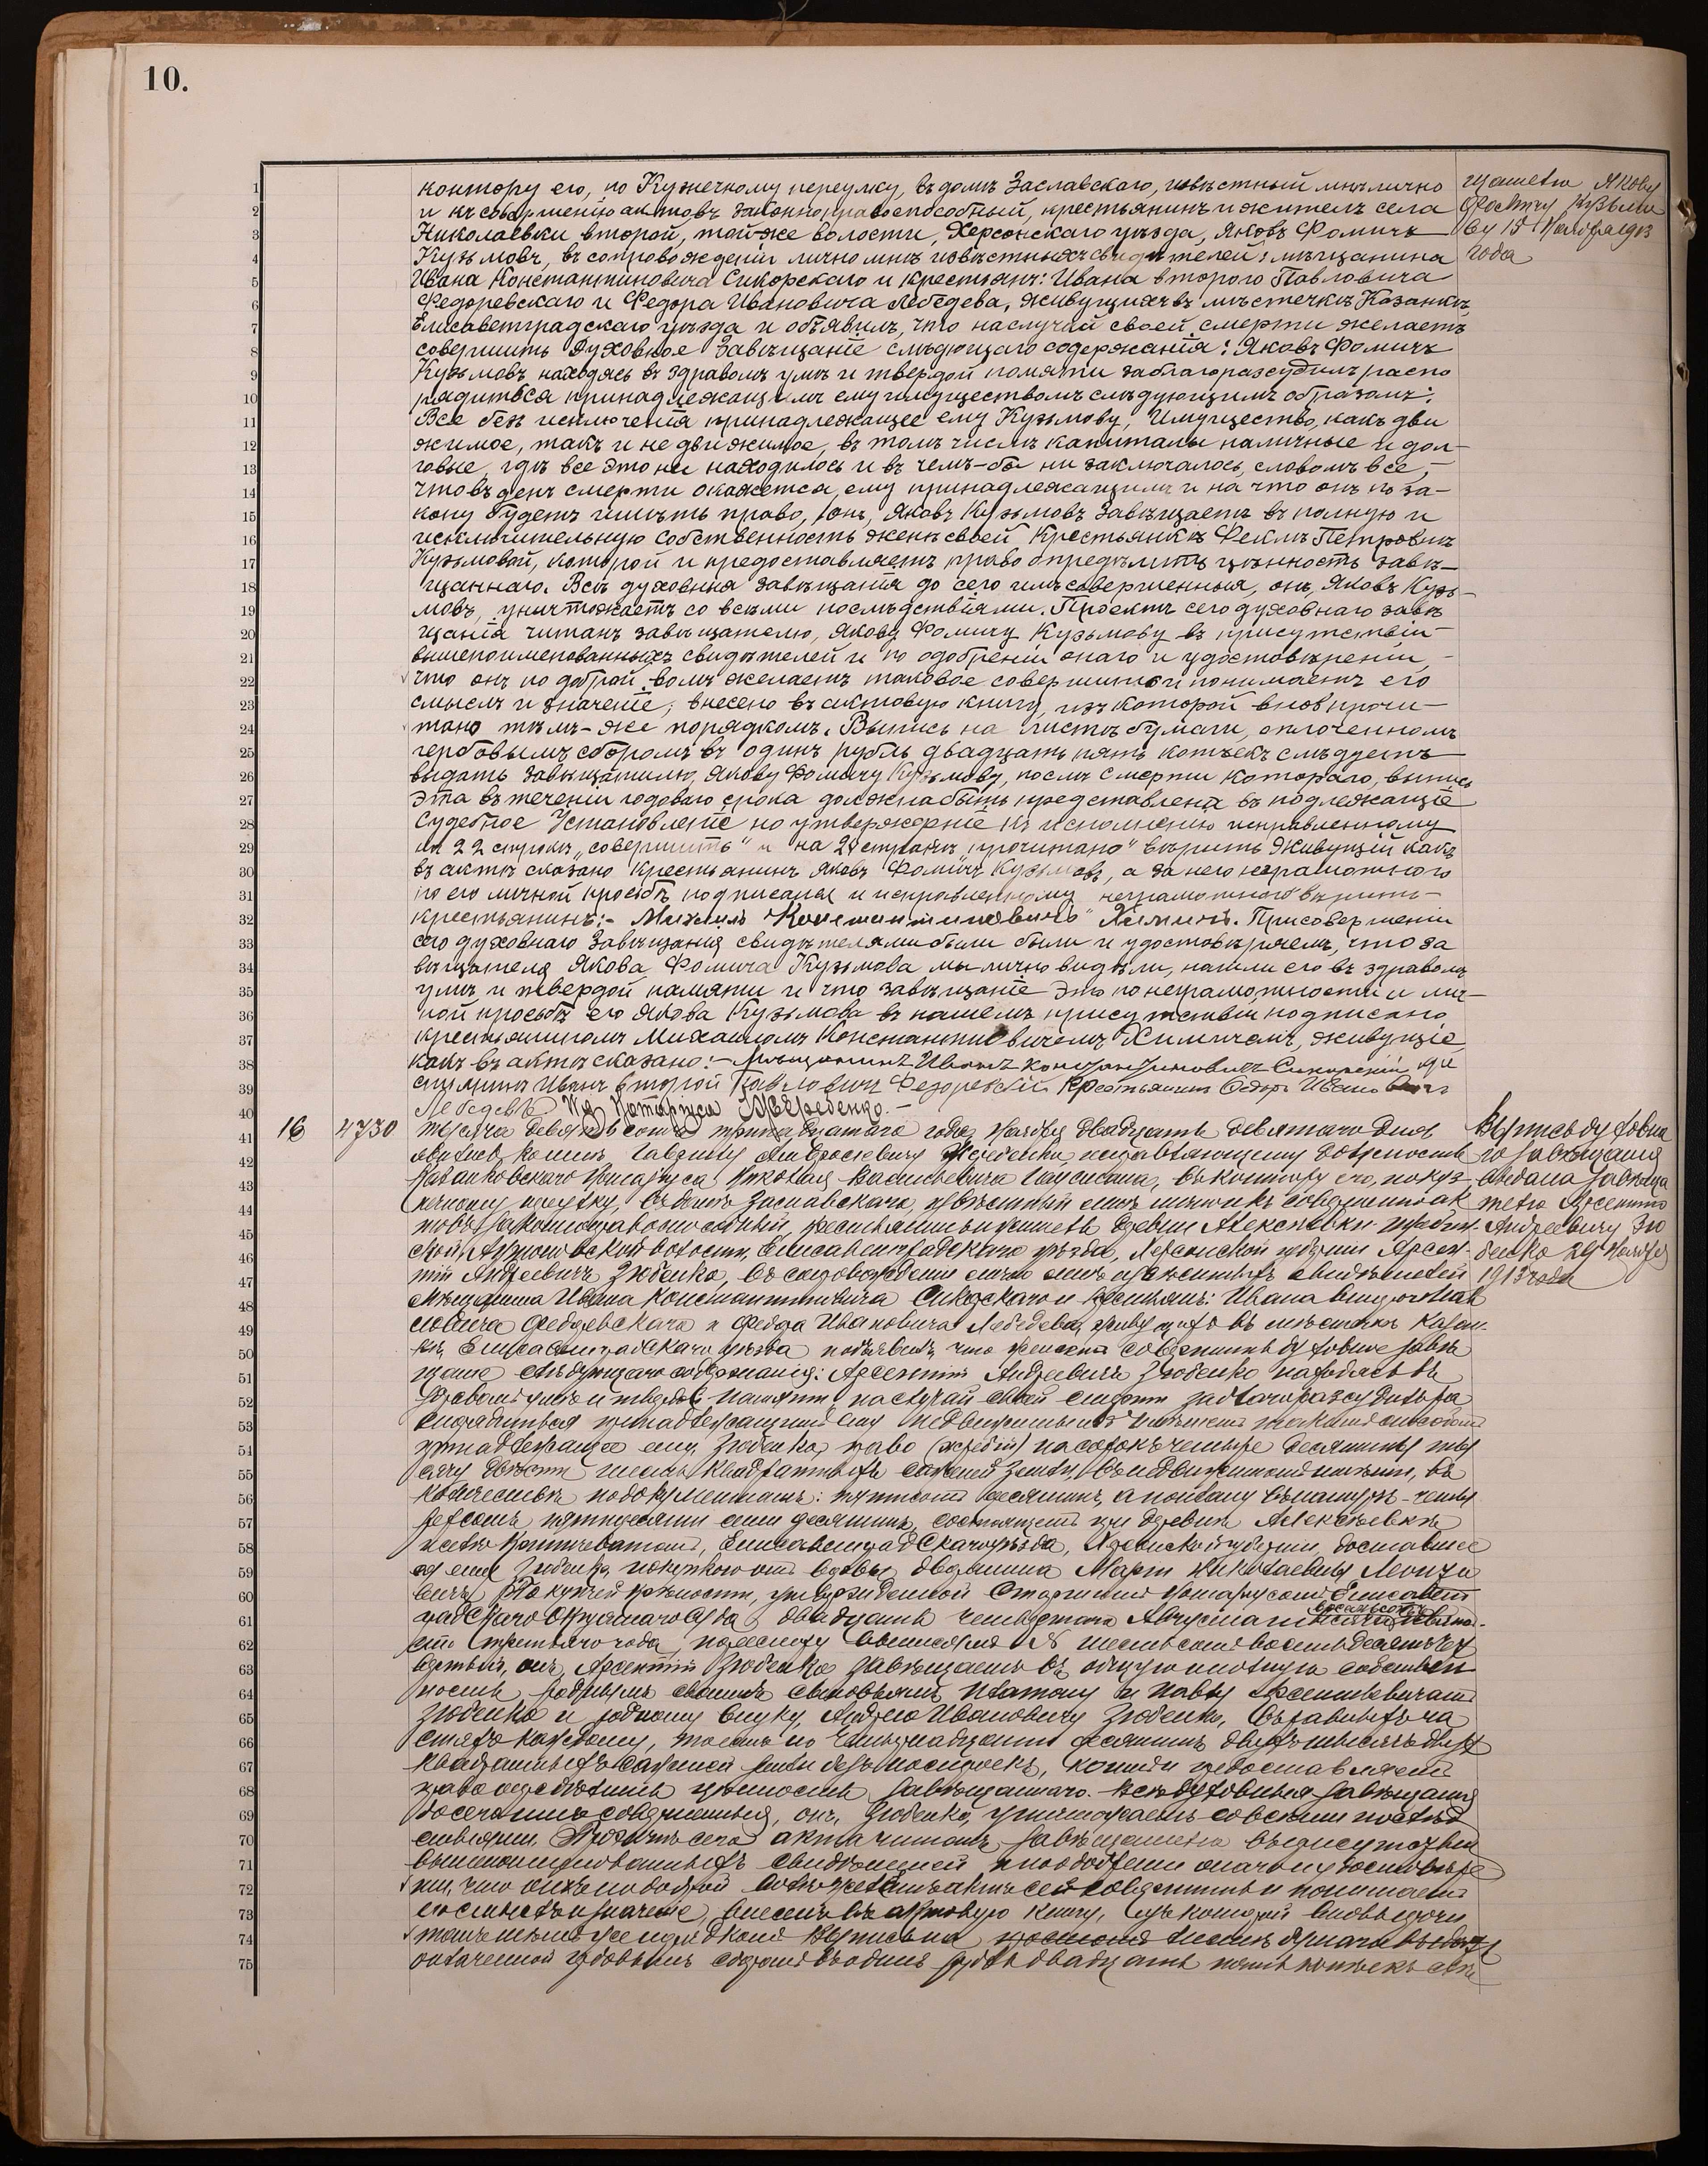 10.
контору его, по Кузнечному переулку, въ домѣ Заславскаго, извѣстный мнѣ лично
и къ совершенію актовъ законноправоспособный, крестьянинъ и житель села
Николаевки второй, той-же волости, Херсонскаго уѣзда, Яковъ Фомичъ
Кузьмовъ, въ сопровожденіи лично мнѣ извѣстныхъ свидѣтелей: мѣщанина
Ивана Константиновича Сикорскаго и крестьянъ: Ивана второго Павловича
Федоревскаго и Федора Ивановича Лебедева, живущихъ въ мѣстечкѣ Казанкѣ,
Елисаветградскаго уѣзда и объявилъ, что на случай своей смерти желаетъ
совершить Духовное Завѣщаніе слѣдующаго содержанія: Яковъ Фомичъ
Кузьмовъ находясь въ здравомъ умѣ и твердой памяти заблагоразсудилъ распо
рядиться принадлежащимъ ему имуществомъ слѣдующимъ образомъ:
Все безъ исключенія принадлежащее ему Кузьмову, Имущество, какъ дви
жимое, такъ и не движимое, въ томъ числѣ капиталы наличные и дол-
говые, гдѣ все это ни находилось и въ чемъ-бы ни заключалось, словомъ все,-
что въ день смерти окажется, ему принадлежащимъ и на что онъ по за-
кону будетъ имѣть право, онъ, Яковъ Кузьмовъ Завѣщаетъ въ полную и
исключительную собственность женѣ своей Крестьянкѣ Феклѣ Петровнѣ
Кузьмовой, которой и предоставляетъ право опредѣлить цѣнность завѣ-
щаннаго. Всѣ духовныя завѣщанія до сего имъ совершенныя, онъ, Яковъ Кузь-
мовъ, уничтожаетъ со всѣми послѣдствіями. Проектъ сего духовнаго завѣ
щанія читанъ завѣщателю, Якову Фомичу Кузьмову въ присутствіи
вышепоименованныхъ свидѣтелей и по одобреніи онаго и удостовѣреніи,-
что онъ по доброй волѣ желаетъ таковое совершить и понимаетъ его
смыслъ и значеніе, внесено въ актовую книгу, изъ которой вновь прочи-
тано тѣмъ-же порядкомъ. Выпись на листѣ бумаги, оплоченномъ
гербовымъ сборомъ въ одинъ рубль двадцать пять копѣекъ слѣдуетъ
выдать завѣщателю, Якову Фомичу Кузьмову, послѣ смерти котораго, выпись
эта въ теченіи годоваго срока должна быть представлена въ подлежащіе
Судебное Установленіе по утвержденіе къ исполненію исправленному
на 22 строкѣ „совершить" и на 24 строкѣ „прочитано" вѣрить Живущій какъ
въ актѣ сказано Крестьянинъ Яковъ Фомичъ Кузьмовъ, а за него неграмотного
по его личной просьбѣ, подписалъ и исправленному „неграмотного" вѣрить-
крестьянинъ:- Михаилъ „Константиновичъ" Химичъ. При совершеніи
сего духовнаго Завѣщанія свидѣтелями были были и удостовѣряемъ, что за
вѣщателя Якова Фомича Кузьмова мы лично видѣли, нашли его въ здравомъ
умѣ и твердой памяти и что завѣщаніе это по неграмотности и лич-
ной просьбѣ его Якова Кузьмова въ нашемъ присутствіи подписано
крестьяниномъ Михаиломъ Константиновичемъ Химичемъ, живущіе,
какъ въ актѣ сказано:- Мѣщанинъ Иванъ Константиновичъ Сикорскій, кре
стьянинъ Иванъ второй Павловичъ Федоревскій Крестьянинъ Федоръ Ивановичъ
Лебедевъ И. д. Нотаріуса
щателю Якову
Фомичу Кузьмо
ву 15 Ноября 1913
года
16 4730 тысяча девятьсотъ тринадцатаго года, Ноября двадцать девятаго дня
явился ко мнѣ, Гавріилу Амвросіевичу исправляющему должность
Казанковскаго Нотаріуса Николая Васильевича въ контору его, по Куз-
нечному переулку, въ домѣ Заславскаго, извѣстный мнѣ лично и къ совершенію ак
товъ законноправоспособный, крестьянинъ и житель деревни Алексѣевки
волости, Елисаветградскаго уѣзда, Херсонской губерніи Арсен-
тій Андреевичъ Зюбенко, въ сопровожденіи лично мнѣ извѣстныхъ свидѣтелей
Мѣщанина Ивана Константиновича Сикорскаго и Крестьянъ: Ивана второго Пав
ловича Федоревскаго и Федора Ивановича Лебедева, живущихъ въ мѣстечкѣ Казан-
кѣ, Елисаветградскаго уѣзда и объявилъ, что желаетъ совершить духовное завѣ
щаніе слѣдующаго содержанія: Арсентій Андреевичъ Зюбенко находясь въ
здравомъ умѣ и твердой памяти на случай своей смерти заблагоразсудилъ ра
спорядиться принадлежащимъ ему недвижимымъ имѣніемъ
принадлежащее ему, Зюбенко, право (жребій) на сорокъ четыре десятины ты
сячу двѣсти квадратныхъ саженей земли, въ недвижимомъ имѣніи, въ
количествѣ по документамъ: десятинъ, а въ натурѣ - четы
рехсотъ пятидесяти семи десятинъ, состоящемъ при деревнѣ Алексѣевкѣ
Елисаветградскаго уѣзда, Херсонской губерніи, доставшее
ся ему Зюбенко, покупкою отъ вдовы дворянина Маріи Николаевны
По купчей крѣпости, утвержденной Старшимъ Нотаріусомъ Елисавет
градскаго Окружнаго Суда двадцать четвертаго Августа тысяча восемьсотъ девяно-
сто третьяго года, по реестру № шестьсотъ восемьдесятъ
онъ, Арсентій Зюбенко завѣщаетъ въ общую и полную собствен
ность роднымъ своимъ сыновьямъ Платону и Павлу Арсентьевичамъ
Зюбенко и родному внуку, Андрею Ивановичу Зюбенко, въ равныхъ ча
стяхъ каждому, то есть по четырнадцати десятинъ двѣ тысячи двѣсти
квадратныхъ саженей земли безъ построекъ, коимъ и предоставляетъ
право опредѣлить цѣнность завѣщаннаго. Всѣ духовныя завѣщанія
до сего имъ совершенныя, онъ, Зюбенко, уничтожаетъ со всѣми послѣд
ствіями. Проектъ сего акта читанъ завѣщателю въ присутствіи
вышепоименованныхъ свидѣтелей и по одобреніи онаго и удостовѣре
ніи, что онъ по доброй волѣ желаетъ актъ сей совершить и понимаетъ
его смыслъ и значеніе, внесенъ въ актовую книгу, изъ которой вновь прочи
танъ тѣмъ же порядкомъ Выпись на листѣ бумаги
оплаченной гербовымъ сборомъ въ одинъ рубль двадцать пять копѣекъ слѣ
Выпись духовна
го завѣщанія
выдана завѣща
телю Арсентію
Андреевичу Зю
бенко 29 Ноября
1913 года